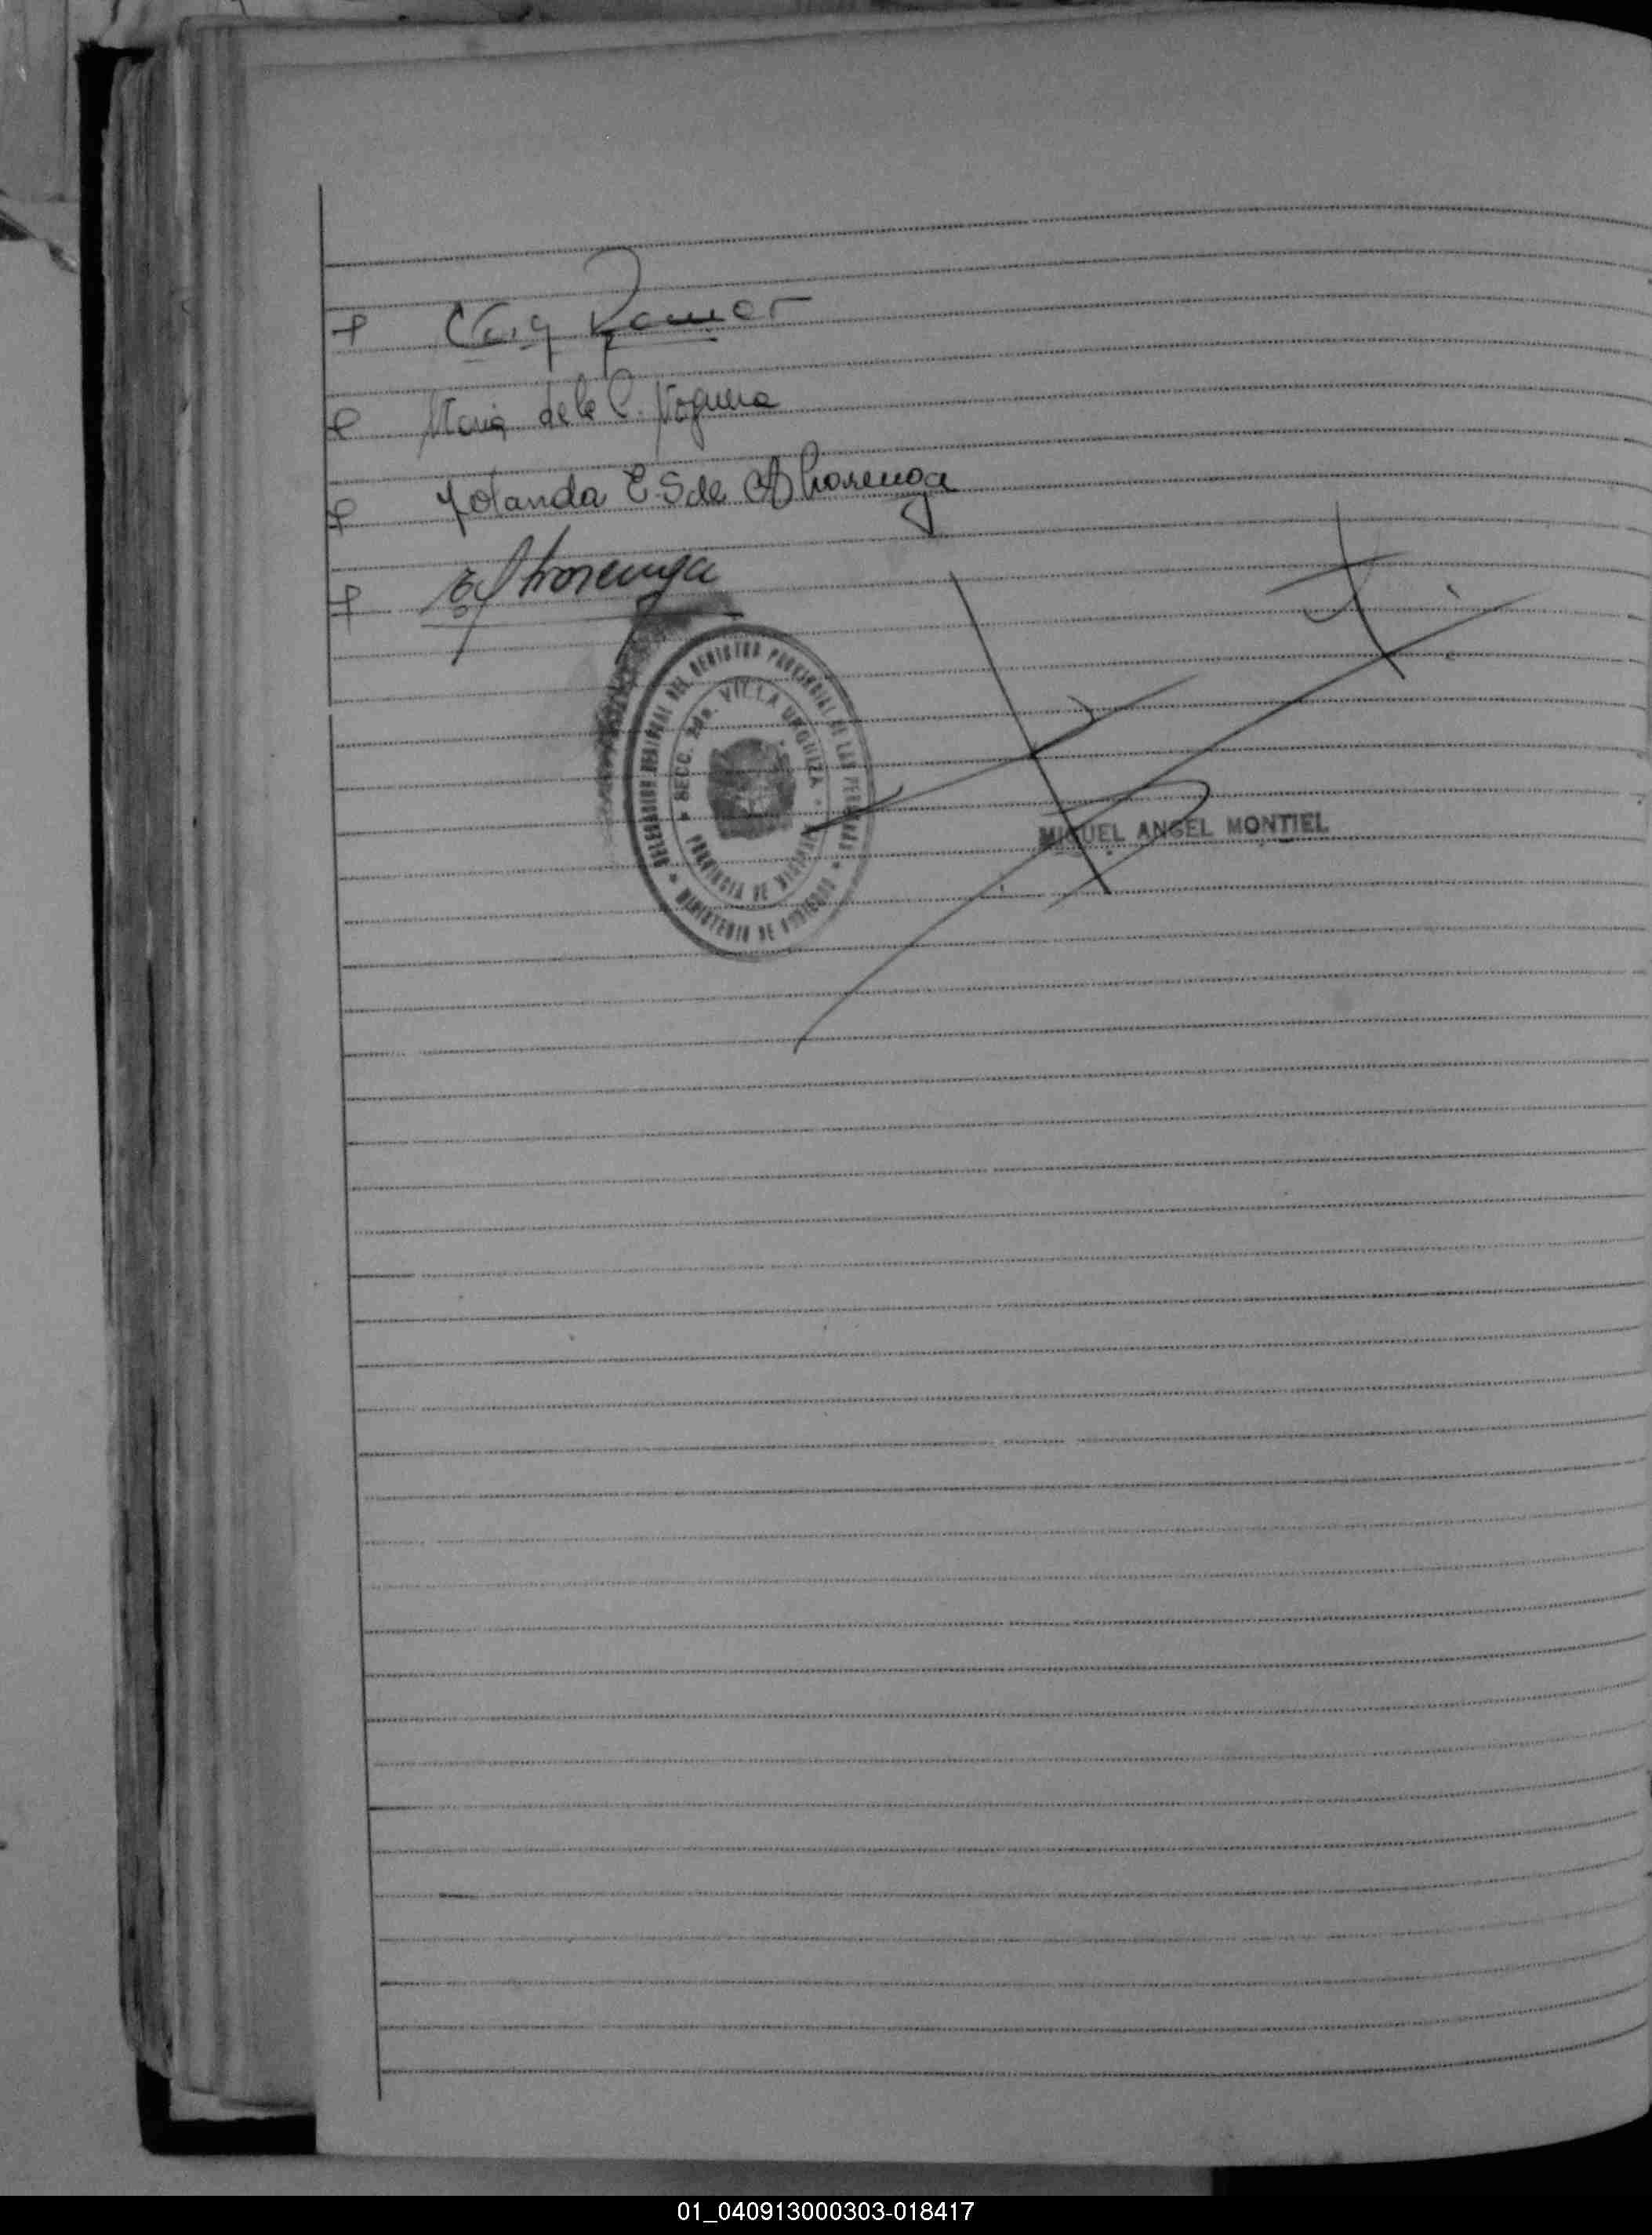 Ramon
Maria de la C. Noguera
Yolanda E. S de Alhorenga
Alhorenga
DELEGACION REGIONAL DEL REGISTRO PROVINCIAL DE LAS PERSONAS
SECC. 2da. VILLA URQUIZA
PROVINCIA DE MISIONES
MINISTERIO DE GOBIERNO
MIGUEL ANGEL MONTIEL
01_040913000303-018417